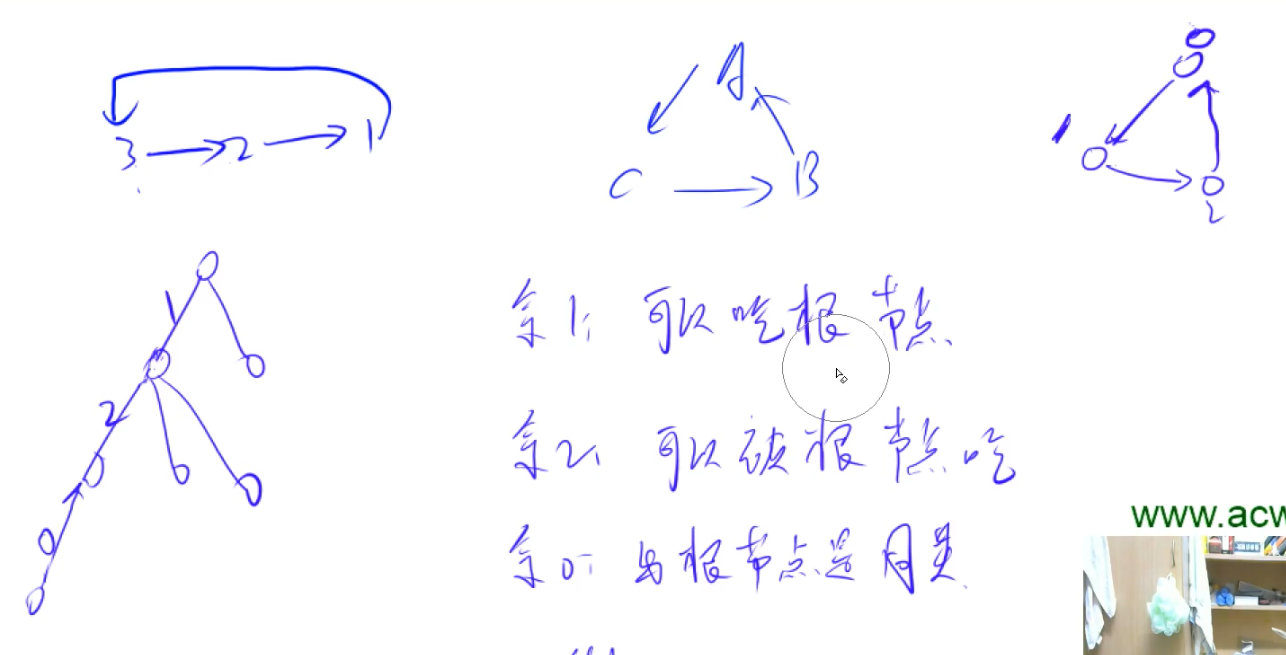 3 2 1
A
C B
1
2
1
2
0
余1: 可以吃根节点
余2: 可以被根节点吃
余0: 与根节点是同类
www.acw